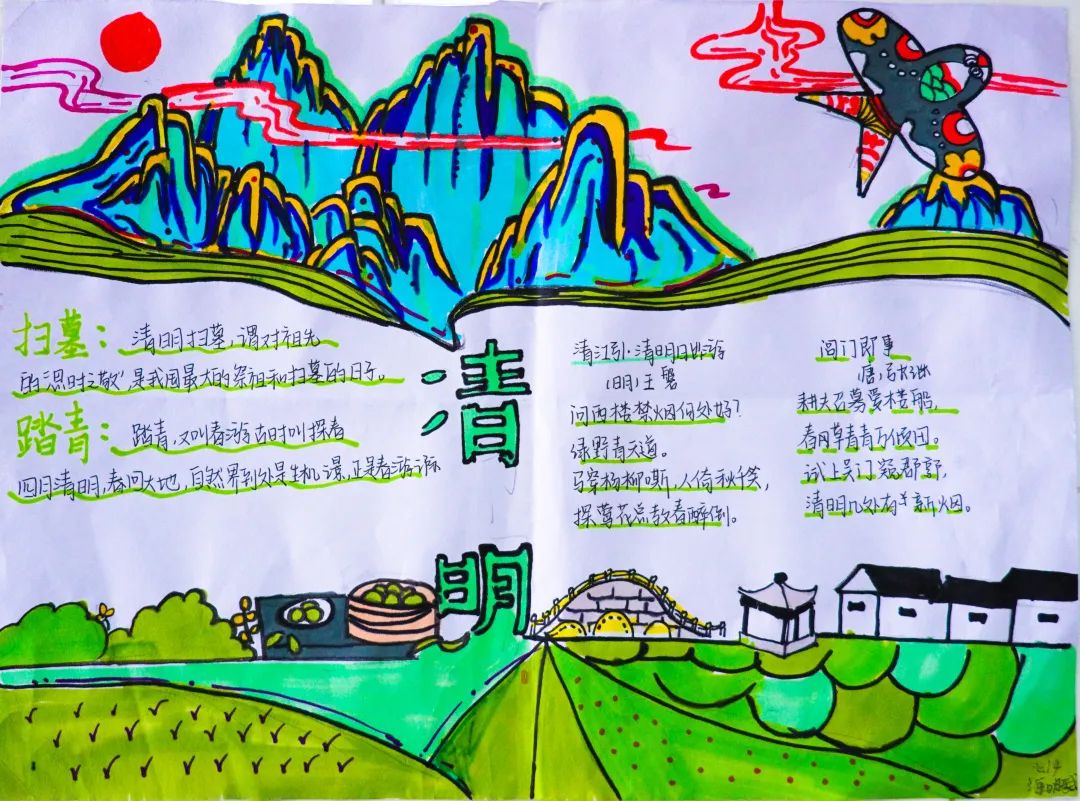 扫墓：清明扫墓，谓对祖先
的“思时之敬”是我国最大的祭祖和扫墓的日子。
踏青：踏青，又叫春游古时叫探春
四月清明，春回大地，自然界到处是生机
清明
清江引·清明日出游
（明）王磐
问西楼禁烟何处好？
绿野青天道。
马穿杨柳嘶，人倚秋千笑，
探莺花总教春醉倒。
阊门即事
唐
耕夫召募爱楼船，
春风草青青万顷田。
试上吴门窥郡郭，
清明几处有新烟。